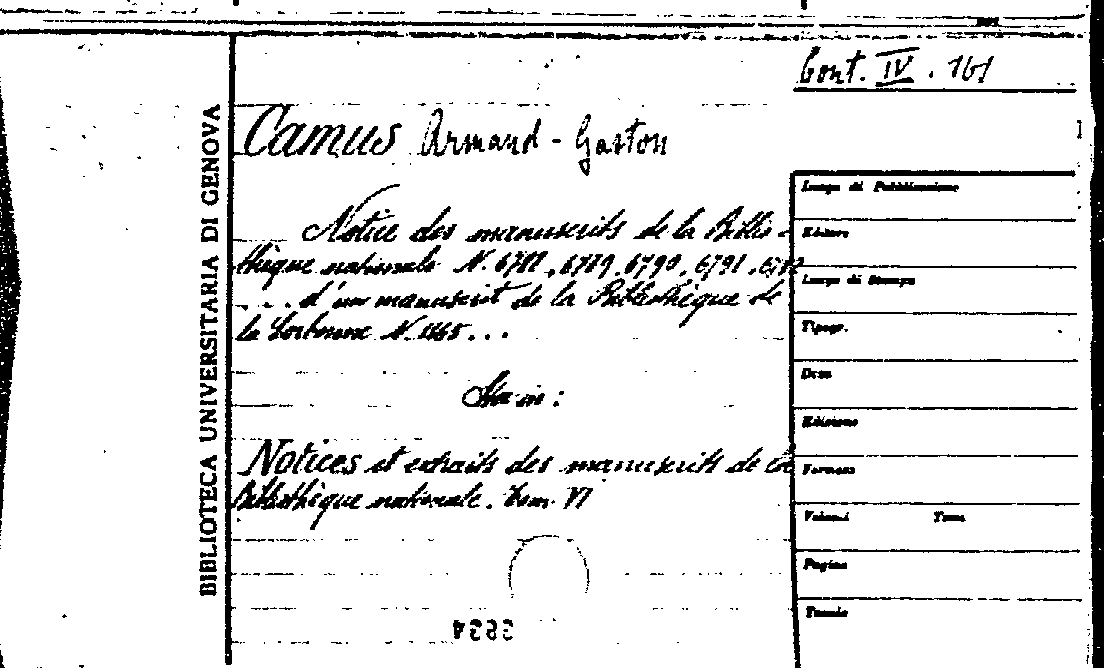 Cont. IV. 161
Camus Armand - Gaston
Notice des manuscrits de la Biblio-
thèque nationale N. 6788, 6789, 6790, 6791, 6792
... d'un manuscrit de la Bibliothèque de
la Sorbonne N. 1465...
Sta in:
Notices et extraits des manuscrits de la
Bibliothèque nationale. Tom. VI
BIBLIOTECA UNIVERSITARIA DI GENOVA
Luogo di Pubblicazione
Editore
Luogo di Stampa
Tipogr.
Data
Edizione
Formato
Volumi Tomi
Pagine
Tavole